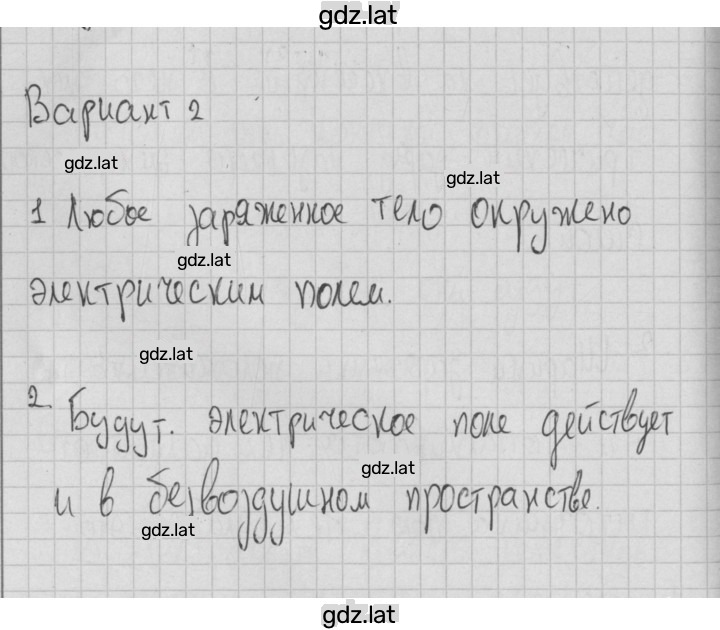 gdz.lat
Вариант 2
gdz.lat
gdz.lat
1 Любое заряженное тело окружено
gdz.lat
электрическим полем.
gdz.lat
2. Будут. электрическое поле действует
gdz.lat
и в безвоздушном пространстве.
gdz.lat
gdz.lat